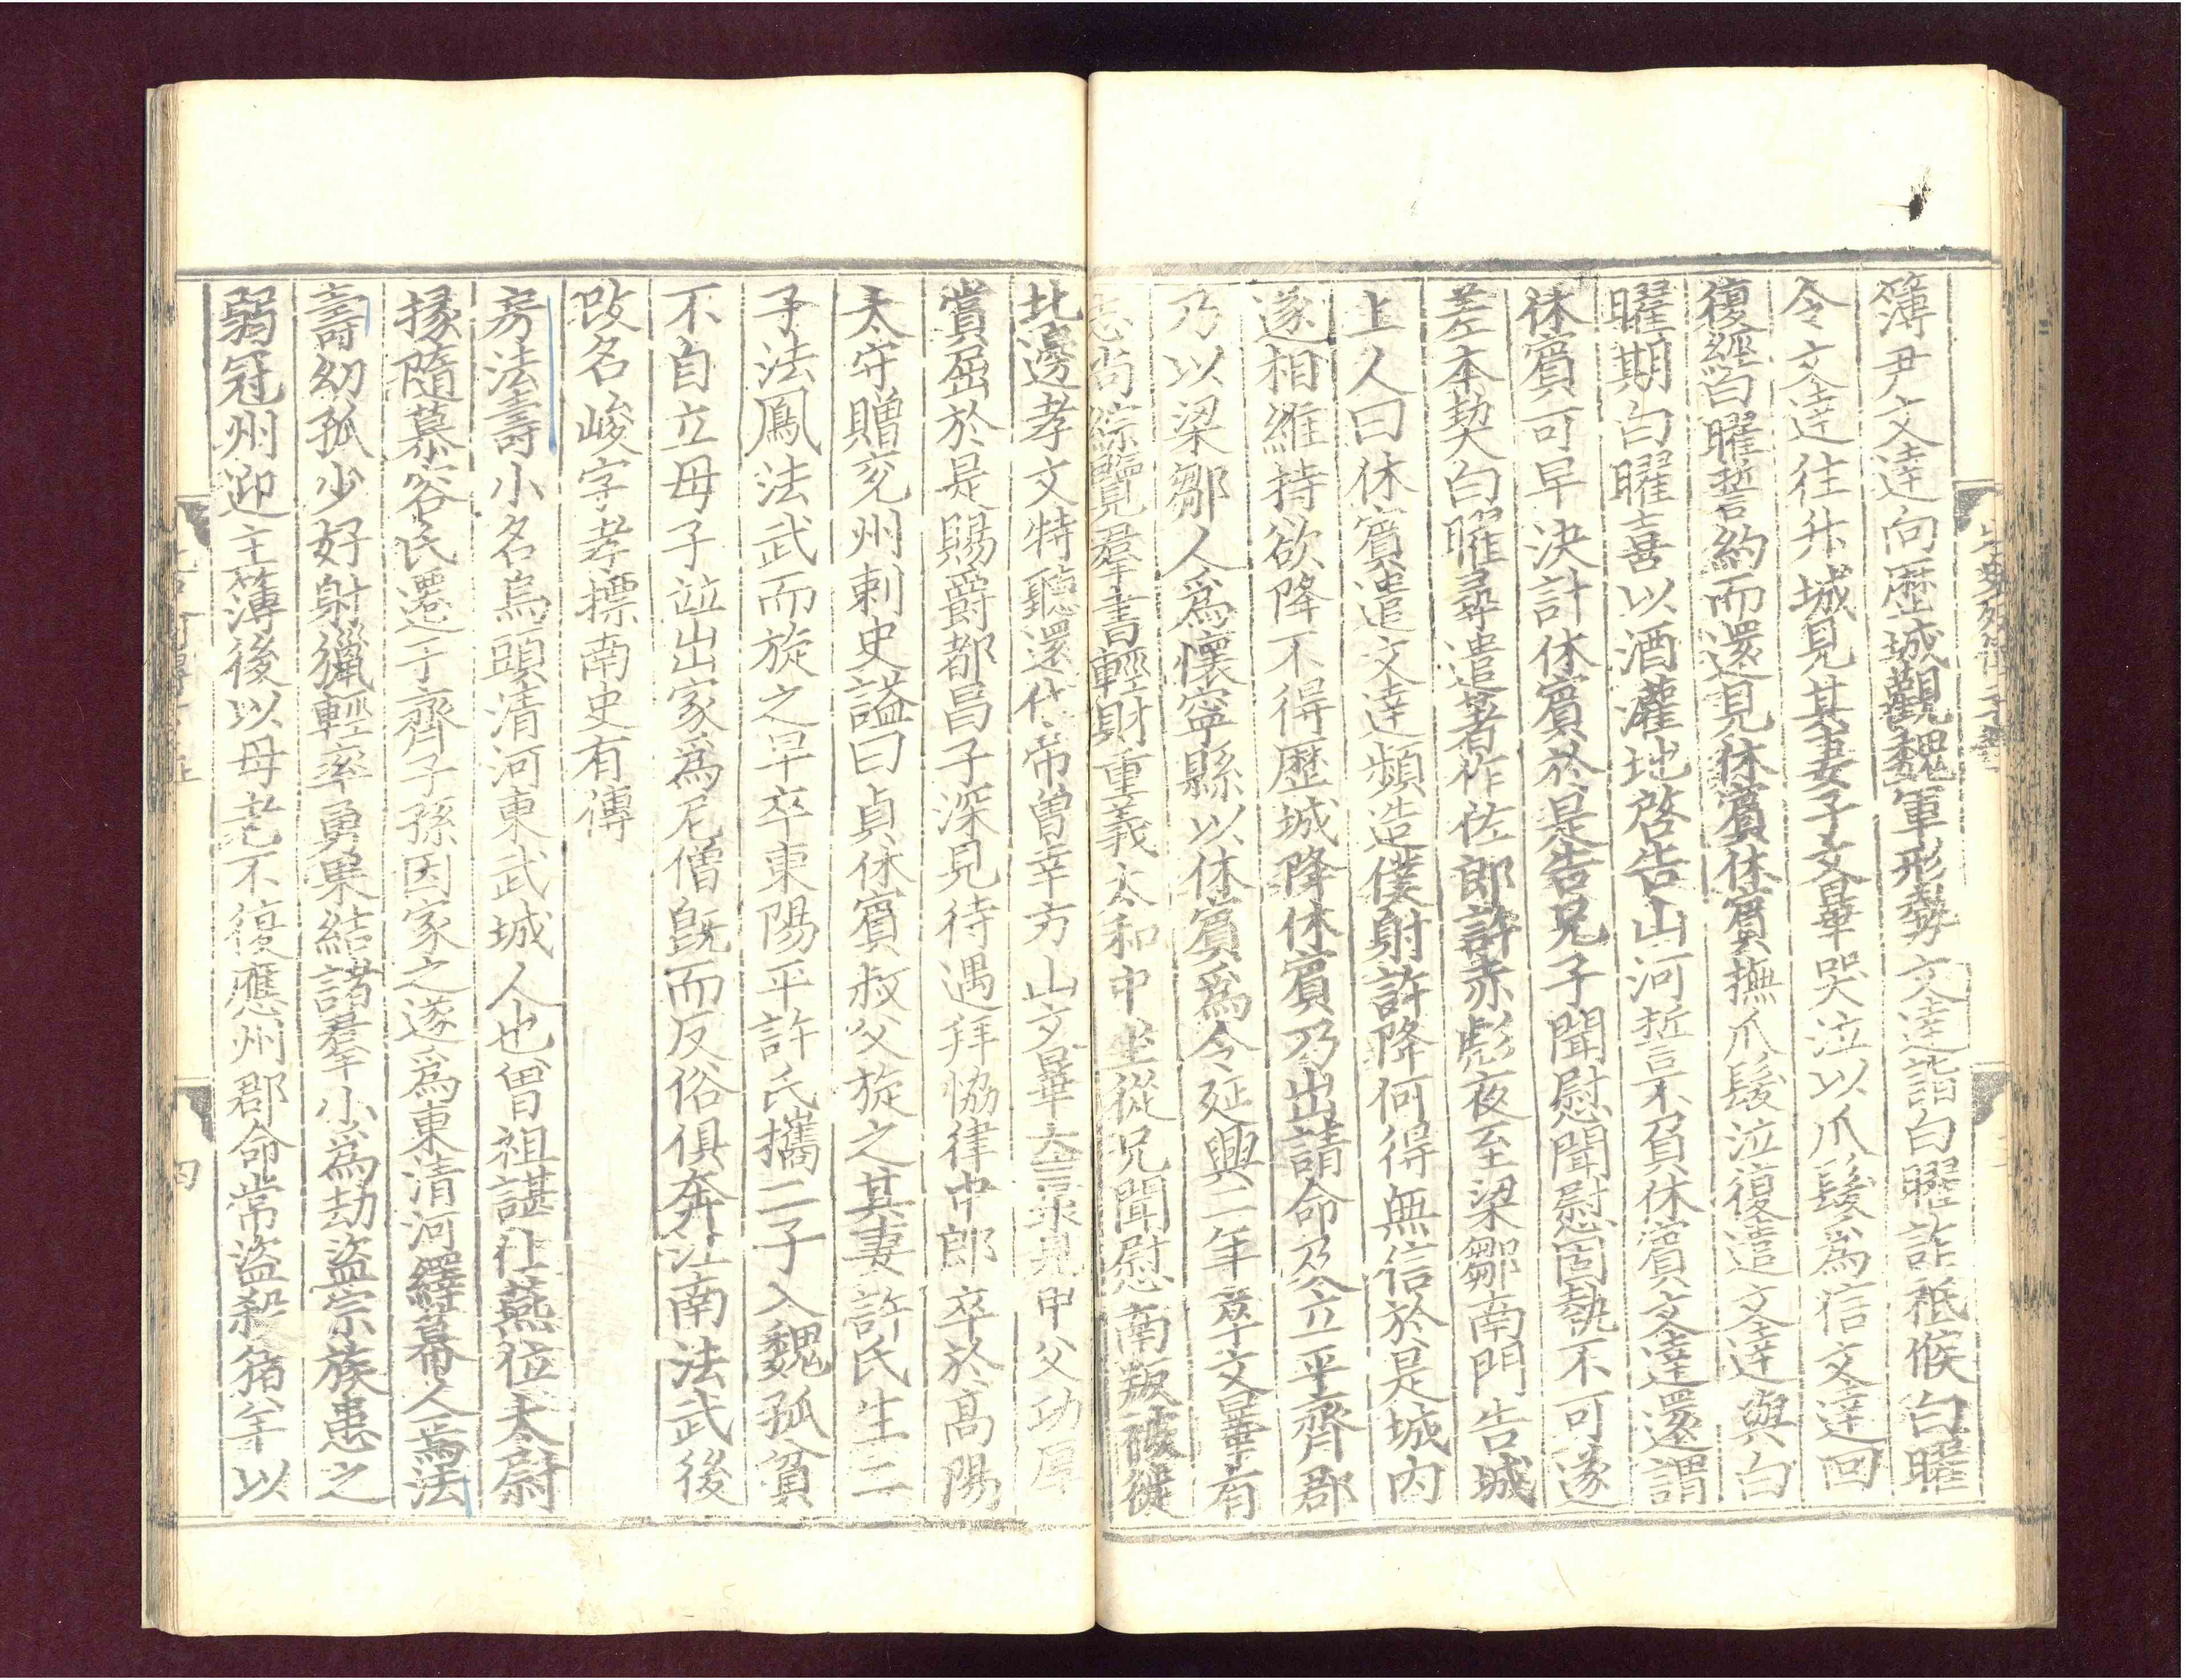 簿尹文達向歷城觀魏軍形勢文達詣白曜詐祗候白曜
令文達往升城見其妻子文曅哭泣以爪髮爲信文達回
復經白曜誓約而還見休賓休賓撫爪髮泣復遣文達與白
曜期白曜喜以酒灌地啓告山河誓不負休賓文達還謂
休賓可早決計休賓於是告兄子聞慰聞慰固執不可遂
差本契白曜尋遣著作佐郎許赤彪夜至梁鄒南門告城
上人曰休賓遣文達頻造僕射許降何得無信於是城内
遂相維持欲降不得歷城降休賓乃出請命及立平齊郡
乃以梁鄒人爲懷寧縣以休賓爲令延興二年卒文曅有
志尚綜覽羣書輕財重義太和中坐從兄聞慰南叛被徙
北邊孝文特聽還代帝曾幸方山文曅大言求見申父功厚
賞屈於是賜爵都昌子深見待遇拜協律中郎卒於高陽
太守贈兗州刺史謚曰貞休賓叔父旋之其妻許氏生二
子法鳳法武而旋之早卒東陽平許氏攜二子入魏孤貧
不自立母子竝出家爲尼僧旣而反俗俱奔江南法武後
改名峻字孝摽南史有傳
房法壽小名烏頭清河東武城人也曾祖諶仕燕位太尉
掾隨慕容氏遷于齊子孫因家之遂爲東清河繹幕人焉法
壽幼孤少好射獵輕率勇果結諸羣小爲劫盜宗族患之
弱冠州迎主簿後以母老不復應州郡命常盜殺猪羊以